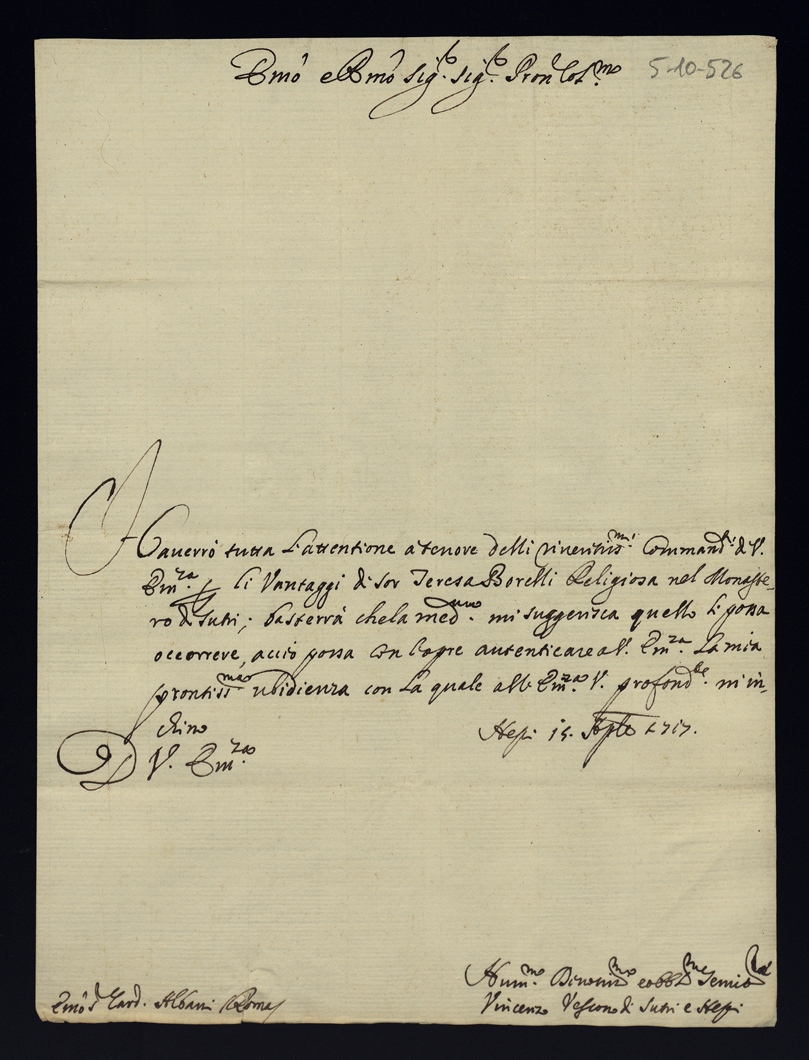 Emõ e Rmõ Sig.r Sig.r Pron Col.mo 5-10-526
Hauerrò tutta l'attentione à tenore delli riueritiss.mi Command.ti di V.
Em.za p li Vantaggi di Sor Teresa Borelli Religiosa nel Monaste-
ro di Sutri; basterrà che la med.ma mi suggerisca quello li possa
occorrere, acciò possa con l'opre autenticare a V. Em.za La mia
prontiss.ma vbidienza con La quale all' Em.za V. profond.te m'in-
chino
Nepi 15. 7bre 1717.
D V. Em.za
Hum.mo Diuotiss.mo et obb.mo Seruid.
Vincenzo Vescouo di Sutri e Nepi
Emõ S. Card. Albani Roma